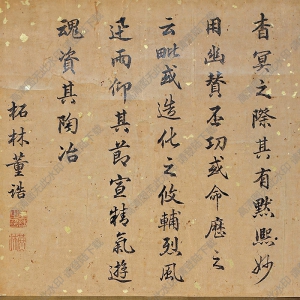 杳冥之際其有默熙妙
用幽賛否功或命歷之
云毗或造化之攸輔烈風
迅雨仰其節宣精氣遊
魂資其陶冶
柘林董誥